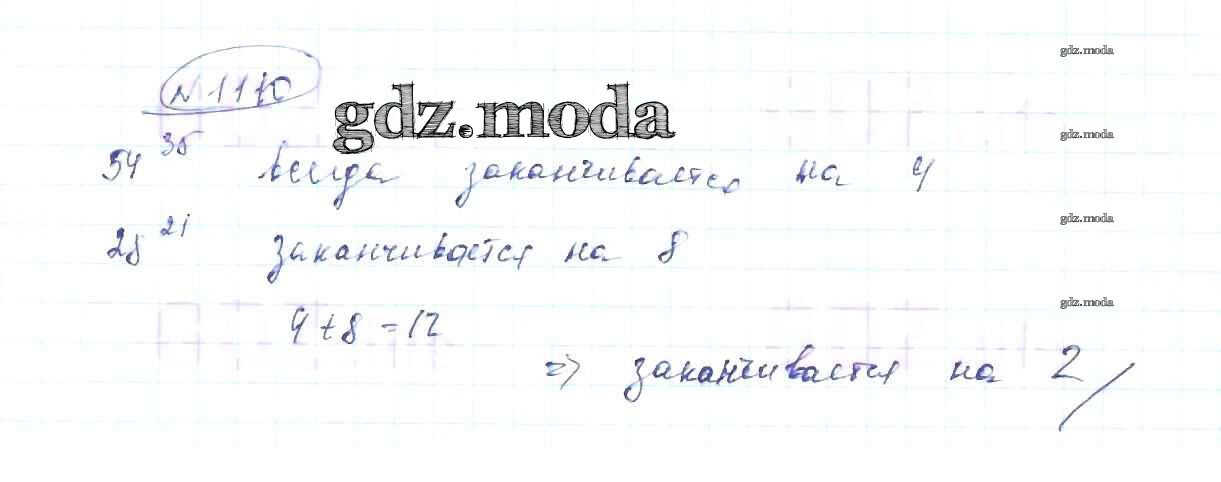 gdz.moda
№ 1170
gdz.moda
gdz.moda
54^35 всегда заканчивается на 4
gdz.moda
28^21 заканчивается на 8
gdz.moda
4+8=12
⇒ заканчивается на 2